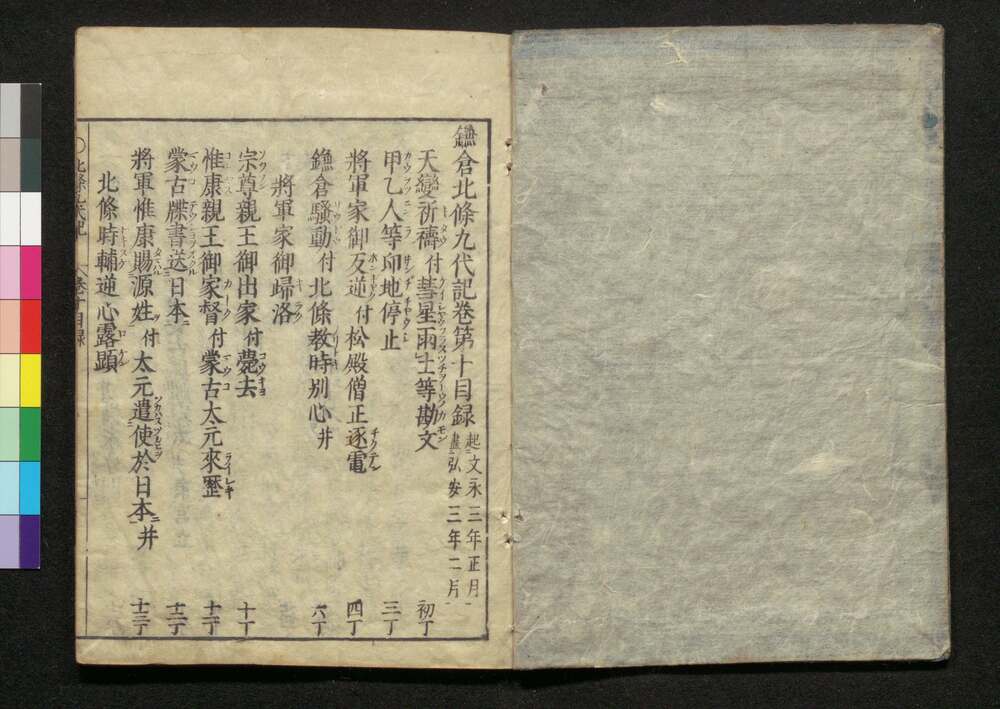 鎌倉北條九代記卷第十目録 起文永三年正月 盡弘安三年二月
天變祈禱付彗星雨土等勘文 初丁
甲乙人等印地停止 三丁
將軍家御反逆付松殿僧正逐電 四丁
鎌倉騷動付北條教時別心并 六丁
將軍家御歸洛
宗尊親王御出家付薨去 十丁
惟康親王御家督付蒙古太元來歷 十一丁
蒙古牒書送日本 十二丁
將軍惟康賜源姓付太元遣使於日本并 十三丁
北條時輔逆心露顕